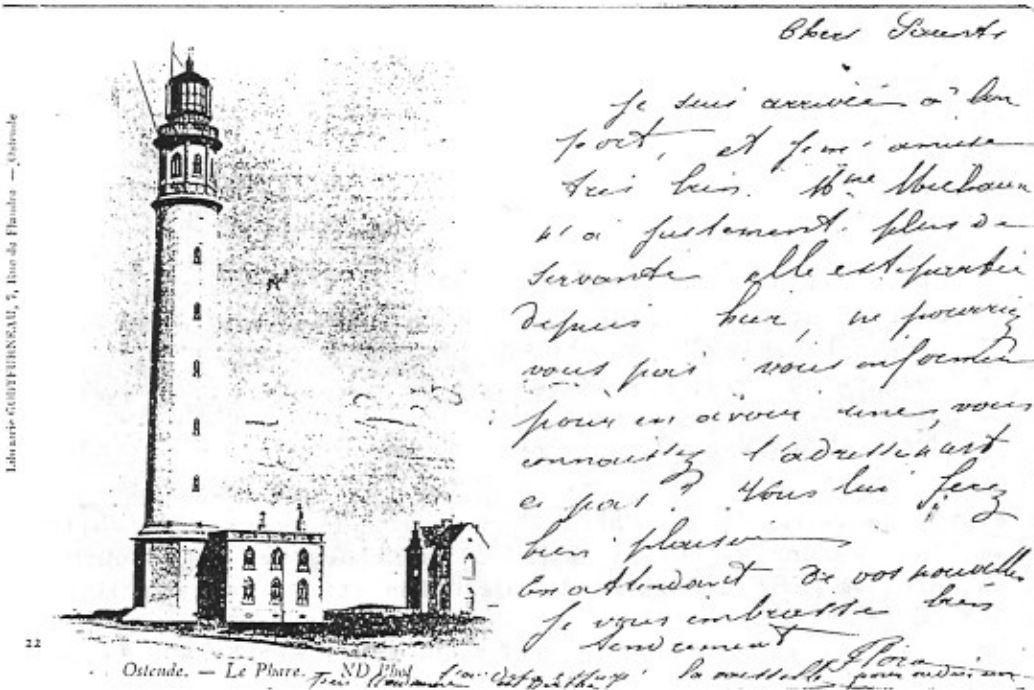 Librairie 7, Rue de Flandre — Ostende
Chers Parents
Je suis arrivée à bon
port, et je m'amuse
très bien. Mme Michaux
n'a justement plus de
servante elle est partie
depuis hier, ne pourriez
vous pas vous informer
pour en avoir une, vous
connaissez l'adresse n'est
ce pas? Vous lui ferez
bien plaisir
En attendant de vos nouvelles
Je vous embrasse bien
tendrement
Flora
22
Ostende. — Le Phare. — ND Phot